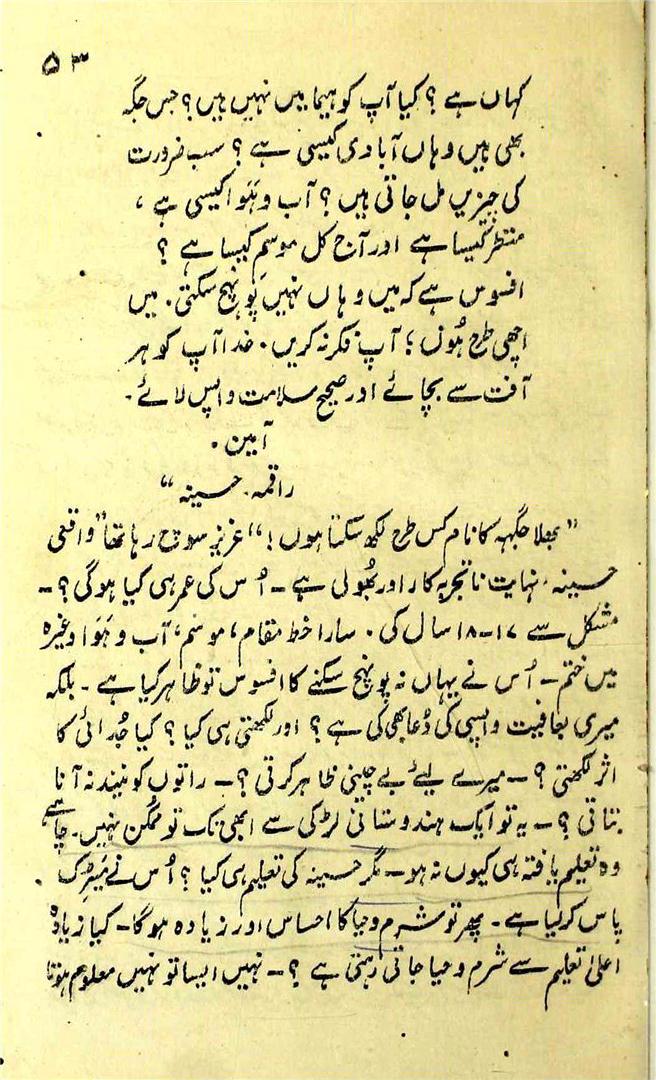 ۵۳
کہاں ہے ؟ کیا آپ کوہیما میں نہیں ہیں ؟ جس جگہ
بھی ہیں وہاں آبادی کیسی ہے ؟ سب ضرورت
کی چیزیں مل جاتی ہیں ؟ آب و ہَوا کیسی ہے ،
منظر کیسا ہے اور آج کل موسم کیسا ہے ؟
افسوس ہے کہ میں وہاں نہیں پَوہنچ سکتی۔ میں
اچھی طرح ہُوں ؛ آپ فکر نہ کریں۔ خدا آپ کو ہر
آفت سے بچائے اور صحیح سلامت واپس لائے۔
آمین۔
راقمہ۔ حسینہ “
” بھلا جگہہ کا نام کس طرح لکھ سکتا ہوں ! “ عزیز سوچ رہا تھا ” واقعی
حسینہ نہایت ناتجربہ کار اور بھُولی ہے ـ اُس کی عمر ہی کیا ہوگی ؟ ـ
مشکل سے ۱۷ـ۱۸ سال کی۔ سارا خط مقام ، موسم ، آب و ہَوا وغیرہ
میں ختم ـ اُس نے یہاں نہ پوہنچ سکنے کا افسوس تو ظاہر کیا ہے ـ بلکہ
میری بعافیت واپسی کی دُعا بھی کی ہے ؟ اور لکھتی ہی کیا ؟ کیا جُدائی کا
اثر لکھتی ؟ ـ میرے لیئے بے چینی ظاہر کرتی ؟ ـ راتوں کو نیند نہ آنا
بتاتی ؟ ـ یہ تو ایک ہندوستانی لڑکی سے ابھی تک تو ممکن نہیں۔ چاہے
وہ تعلیم یافتہ ہی کیوں نہ ہو ـ مگر حسینہ کی تعلیم ہی کیا ؟ اُس نے میٹرک
پاس کر لیا ہے۔ پھر تو شرم و حیا کا احساس اور زیادہ ہوگا ـ کیا زیادہ
اعلیٰ تعلیم سے شرم و حیا جاتی رہتی ہے ؟ ـ نہیں ایسا تو نہیں معلوم ہوتا